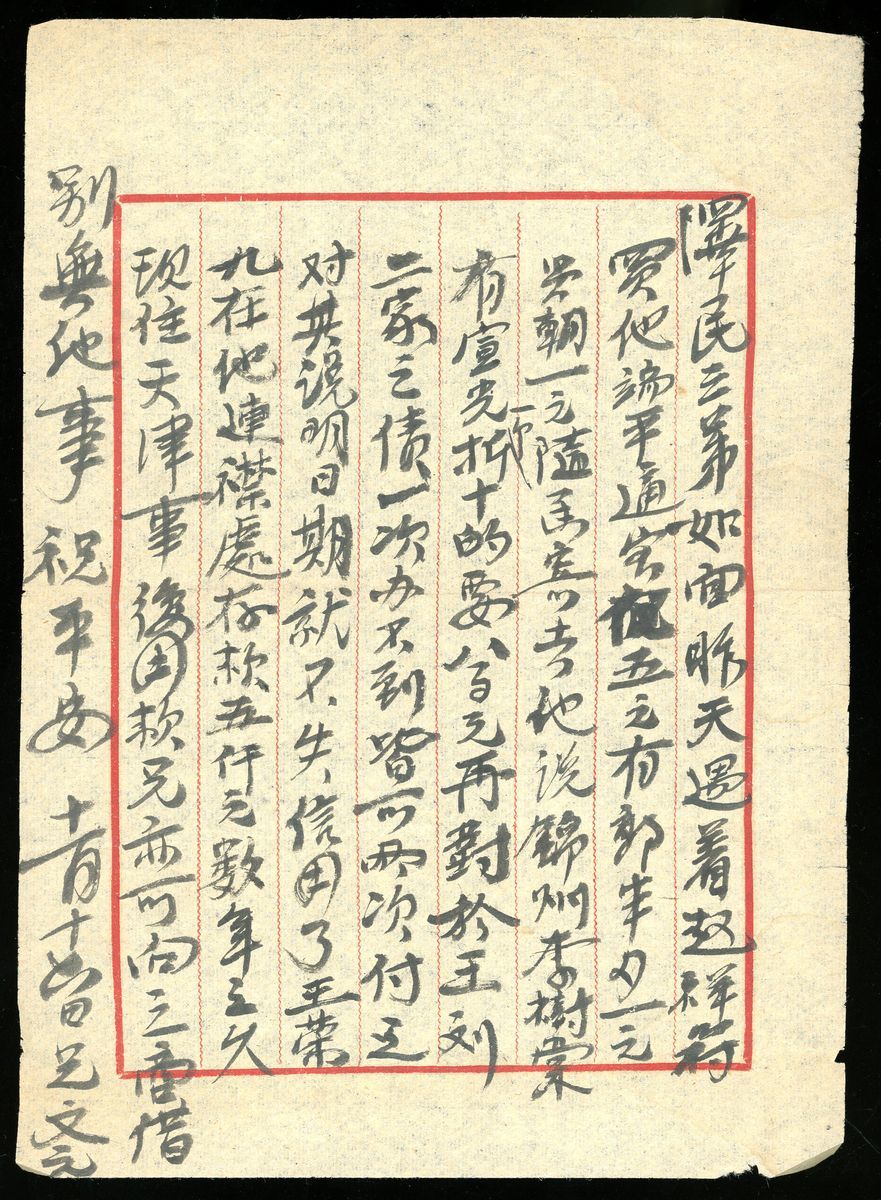 泽民三弟如面昨天遇着赵祥符
买他端平通宝五元有部半月一元
号朝一元随他说锦州李树棠
有宣光折十的要八百元再對於王刘
二家之债一次办不到皆可兩次付之
对其说明日期就不失信用了王荣
九在他連襟處存款五仟元数年之久
現住天津事後困款兄亦可向之商借
别無他事祝平安 十一月十六日兄文元